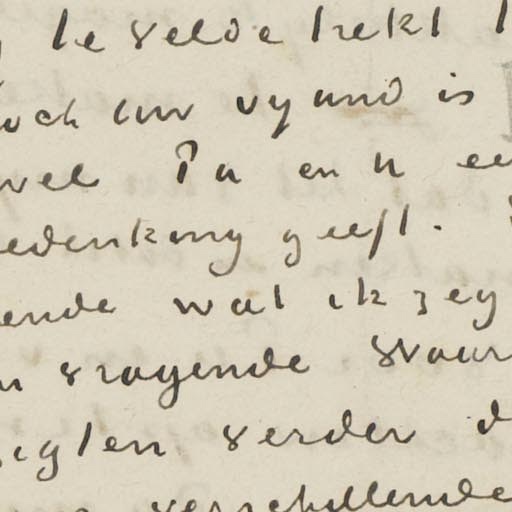 te velde trekt
och uw vyand is
wel Pa en u ee
edenking geeft.
ende wat ik zeg
vragende vour
igten verder d
verschillende